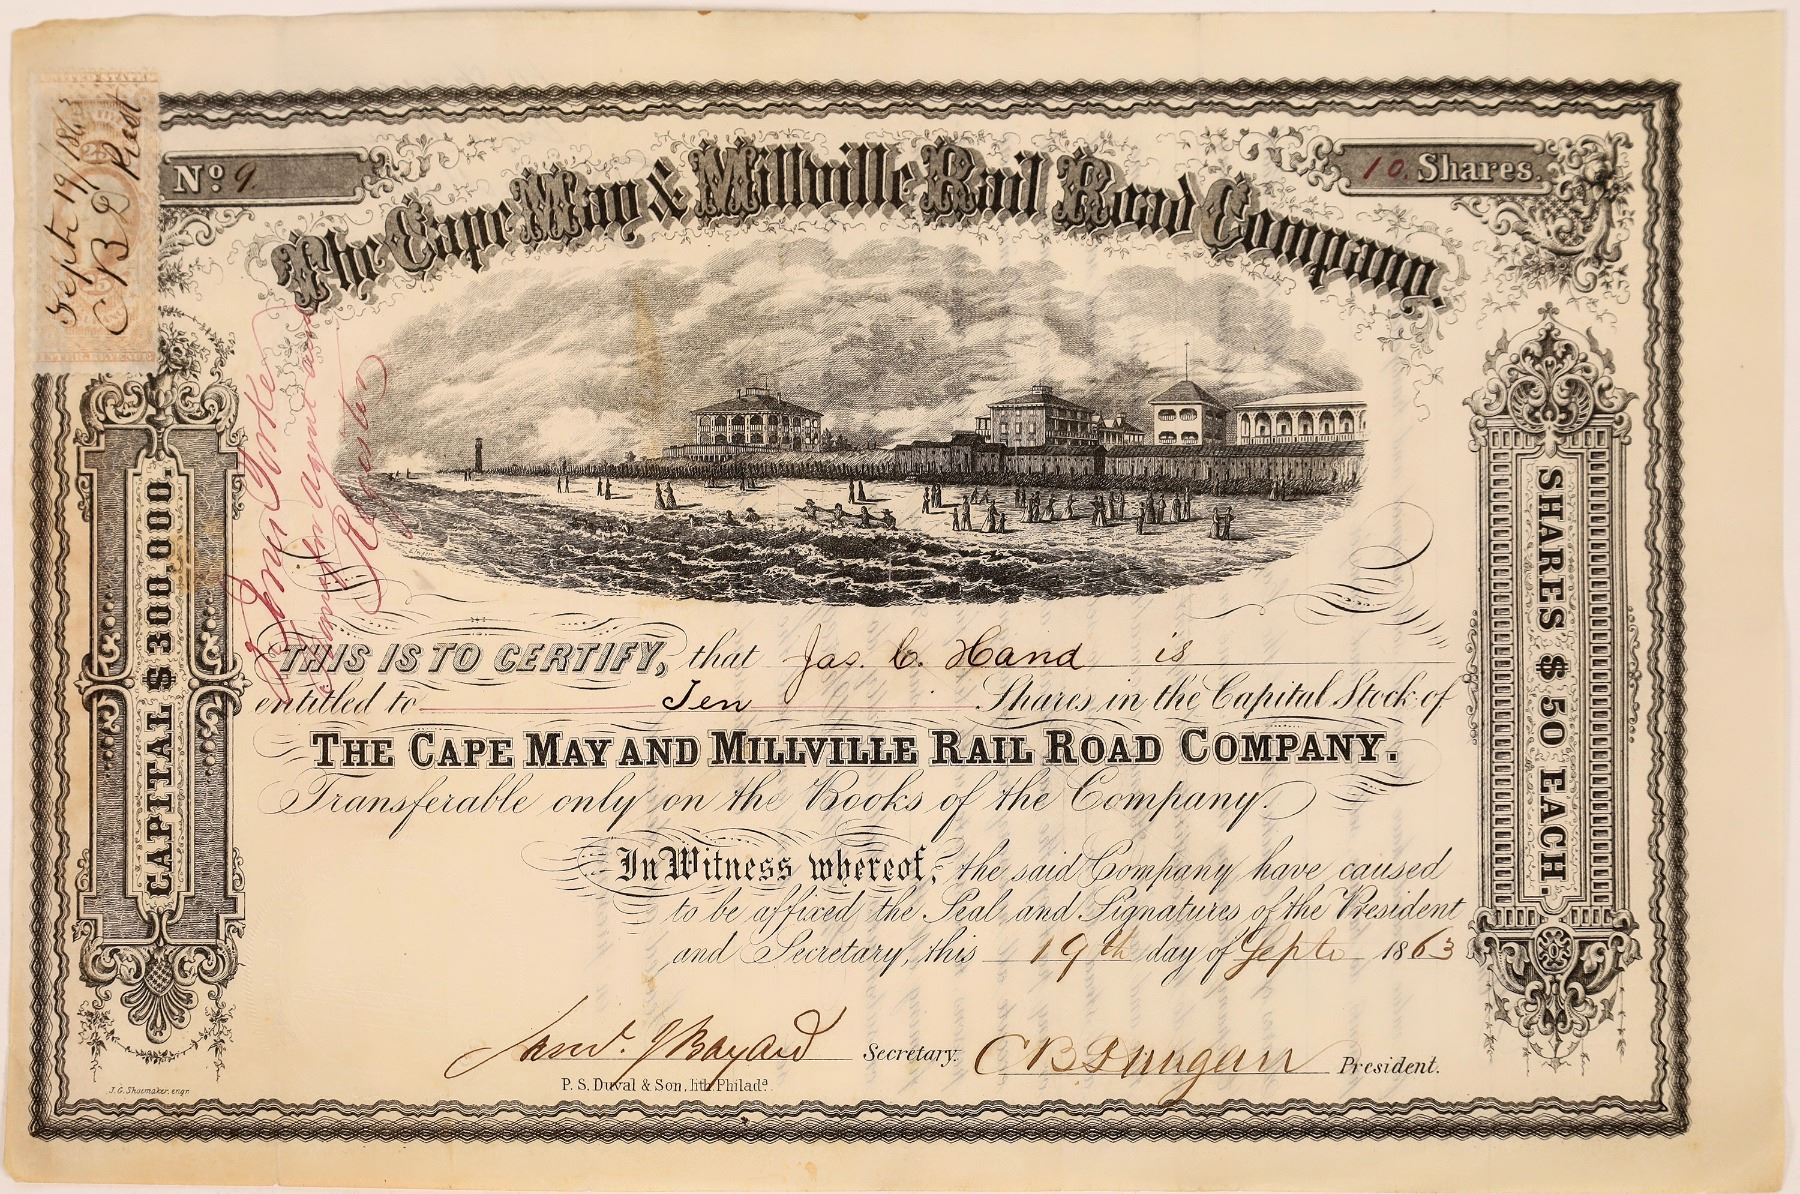 UNITED STATES
Sept. 19/1863
C B D Prest
INTER. REVENUE
No. 9.
10. Shares.
The Cape May & Millville Rail Road Company.
CAPITAL $300,000.
SHARES $50 EACH.
agent and
Register
THIS IS TO CERTIFY, that Jas. C. Hand is
entitled to Ten Shares in the Capital Stock of
THE CAPE MAY AND MILLVILLE RAIL ROAD COMPANY.
Transferable only on the Books of the Company.
In Witness whereof, the said Company have caused
to be affixed the Seal and Signatures of the President
and Secretary, this 19th day of Septr. 1863
Bayard Secretary. C B Dungan President.
P. S. Duval & Son, lith. Philada.
J. G. Shoemaker, engr.